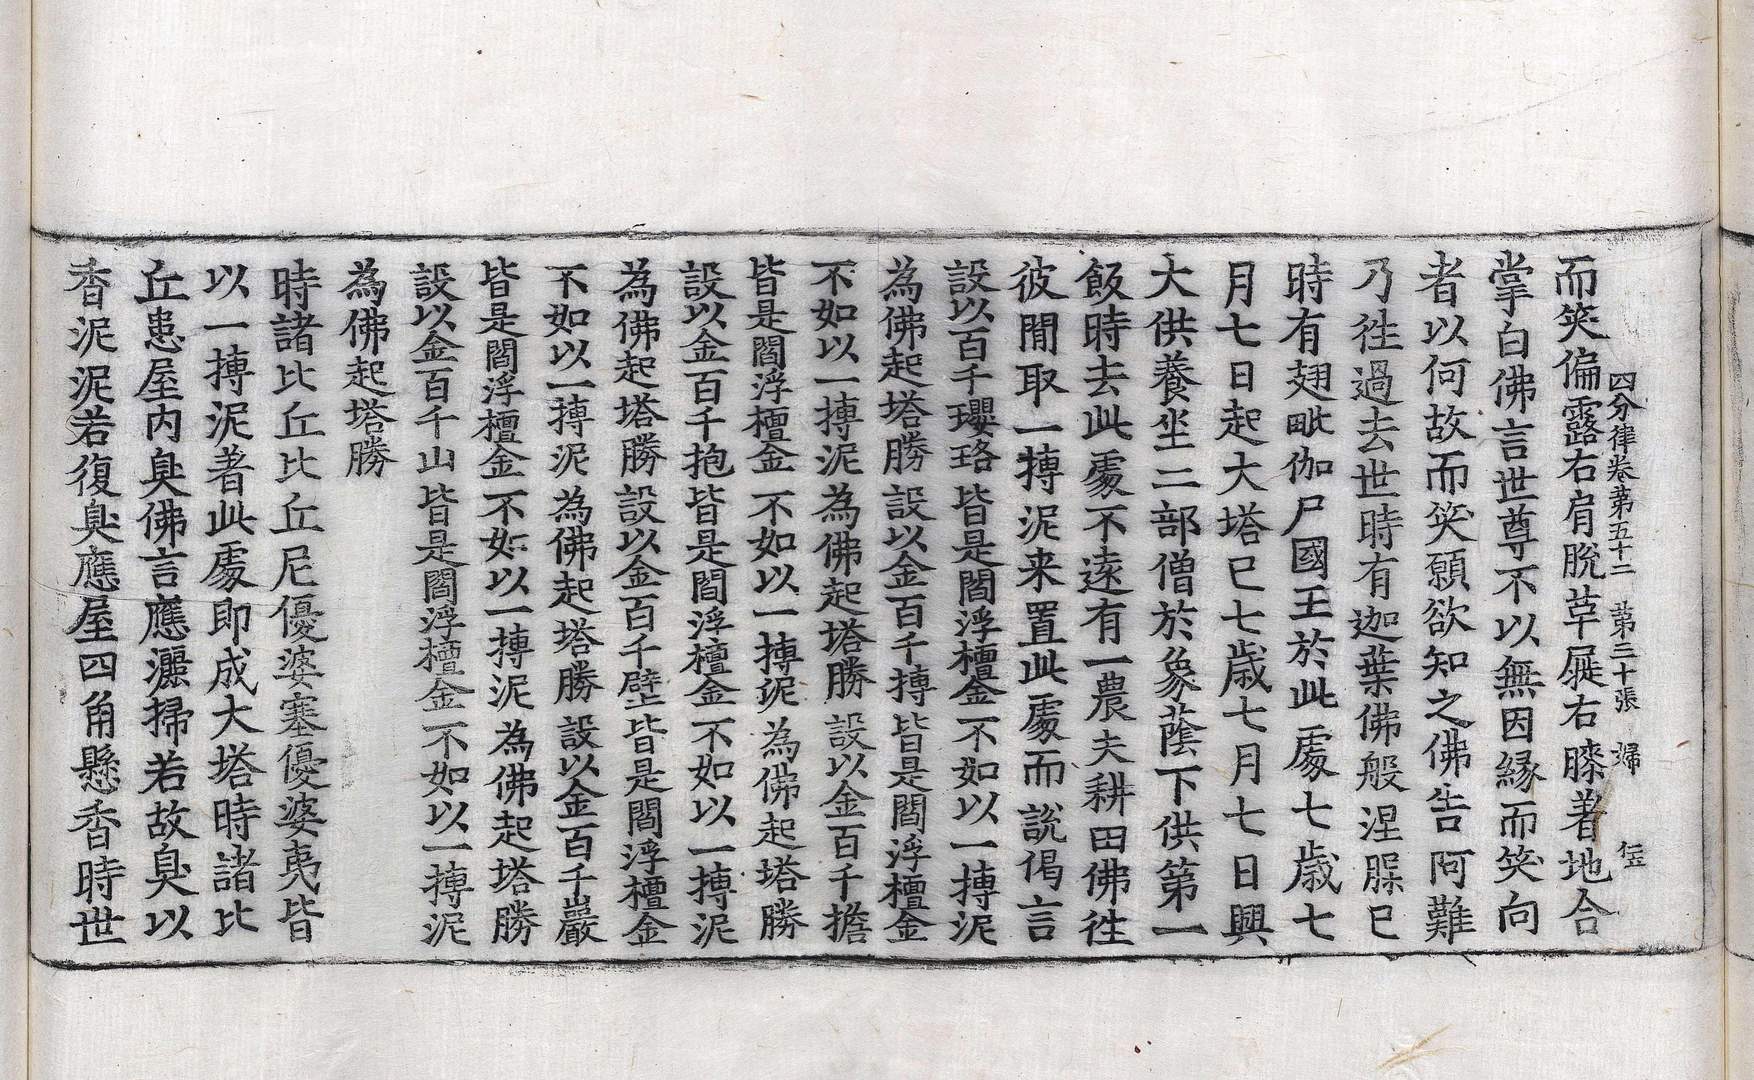 四分律卷第五十二　第三十張　歸
而笑偏露右肩脫革屣右膝著地合
掌白佛言世尊不以無因緣而笑向
者以何故而笑願欲知之佛告阿難
乃往過去世時有迦葉佛般涅槃已
時有翅毗伽尸國王於此處七歲七
月七日起大塔已七歲七月七日興
大供養坐二部僧於象蔭下供第一
飯時去此處不遠有一農夫耕田佛往
彼間取一摶泥来置此處而說偈言
設以百千瓔珞　皆是閻浮檀金　不如以一摶泥
為佛起塔勝　設以金百千摶　皆是閻浮檀金
不如以一摶泥　為佛起塔勝　設以金百千擔
皆是閻浮檀金　不如以一摶泥　為佛起塔勝
設以金百千抱　皆是閻浮檀金　不如以一摶泥
為佛起塔勝　設以金百千壁　皆是閻浮檀金
不如以一摶泥　為佛起塔勝　設以金百千巖
皆是閻浮檀金　不如以一摶泥　為佛起塔勝
設以金百千山　皆是閻浮檀金　不如以一摶泥
為佛起塔勝
時諸比丘比丘尼優婆塞優婆夷皆
以一摶泥著此處即成大塔時諸比
丘患屋內臭佛言應灑掃若故臭以
香泥泥若復臭應屋四角懸香時世